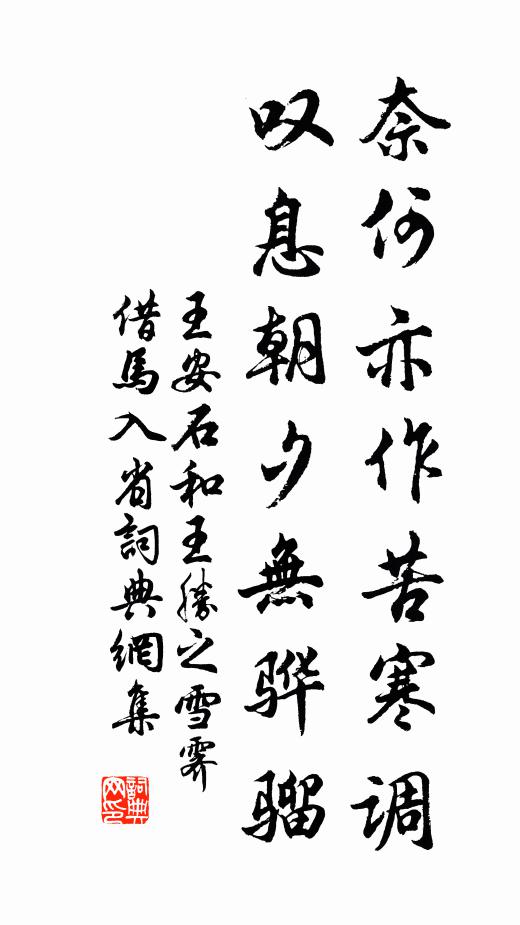 奈何亦作苦寒调
叹息朝夕無骅骝
王安石和王勝之雪霁
借馬入省詞典網集
詞典网印